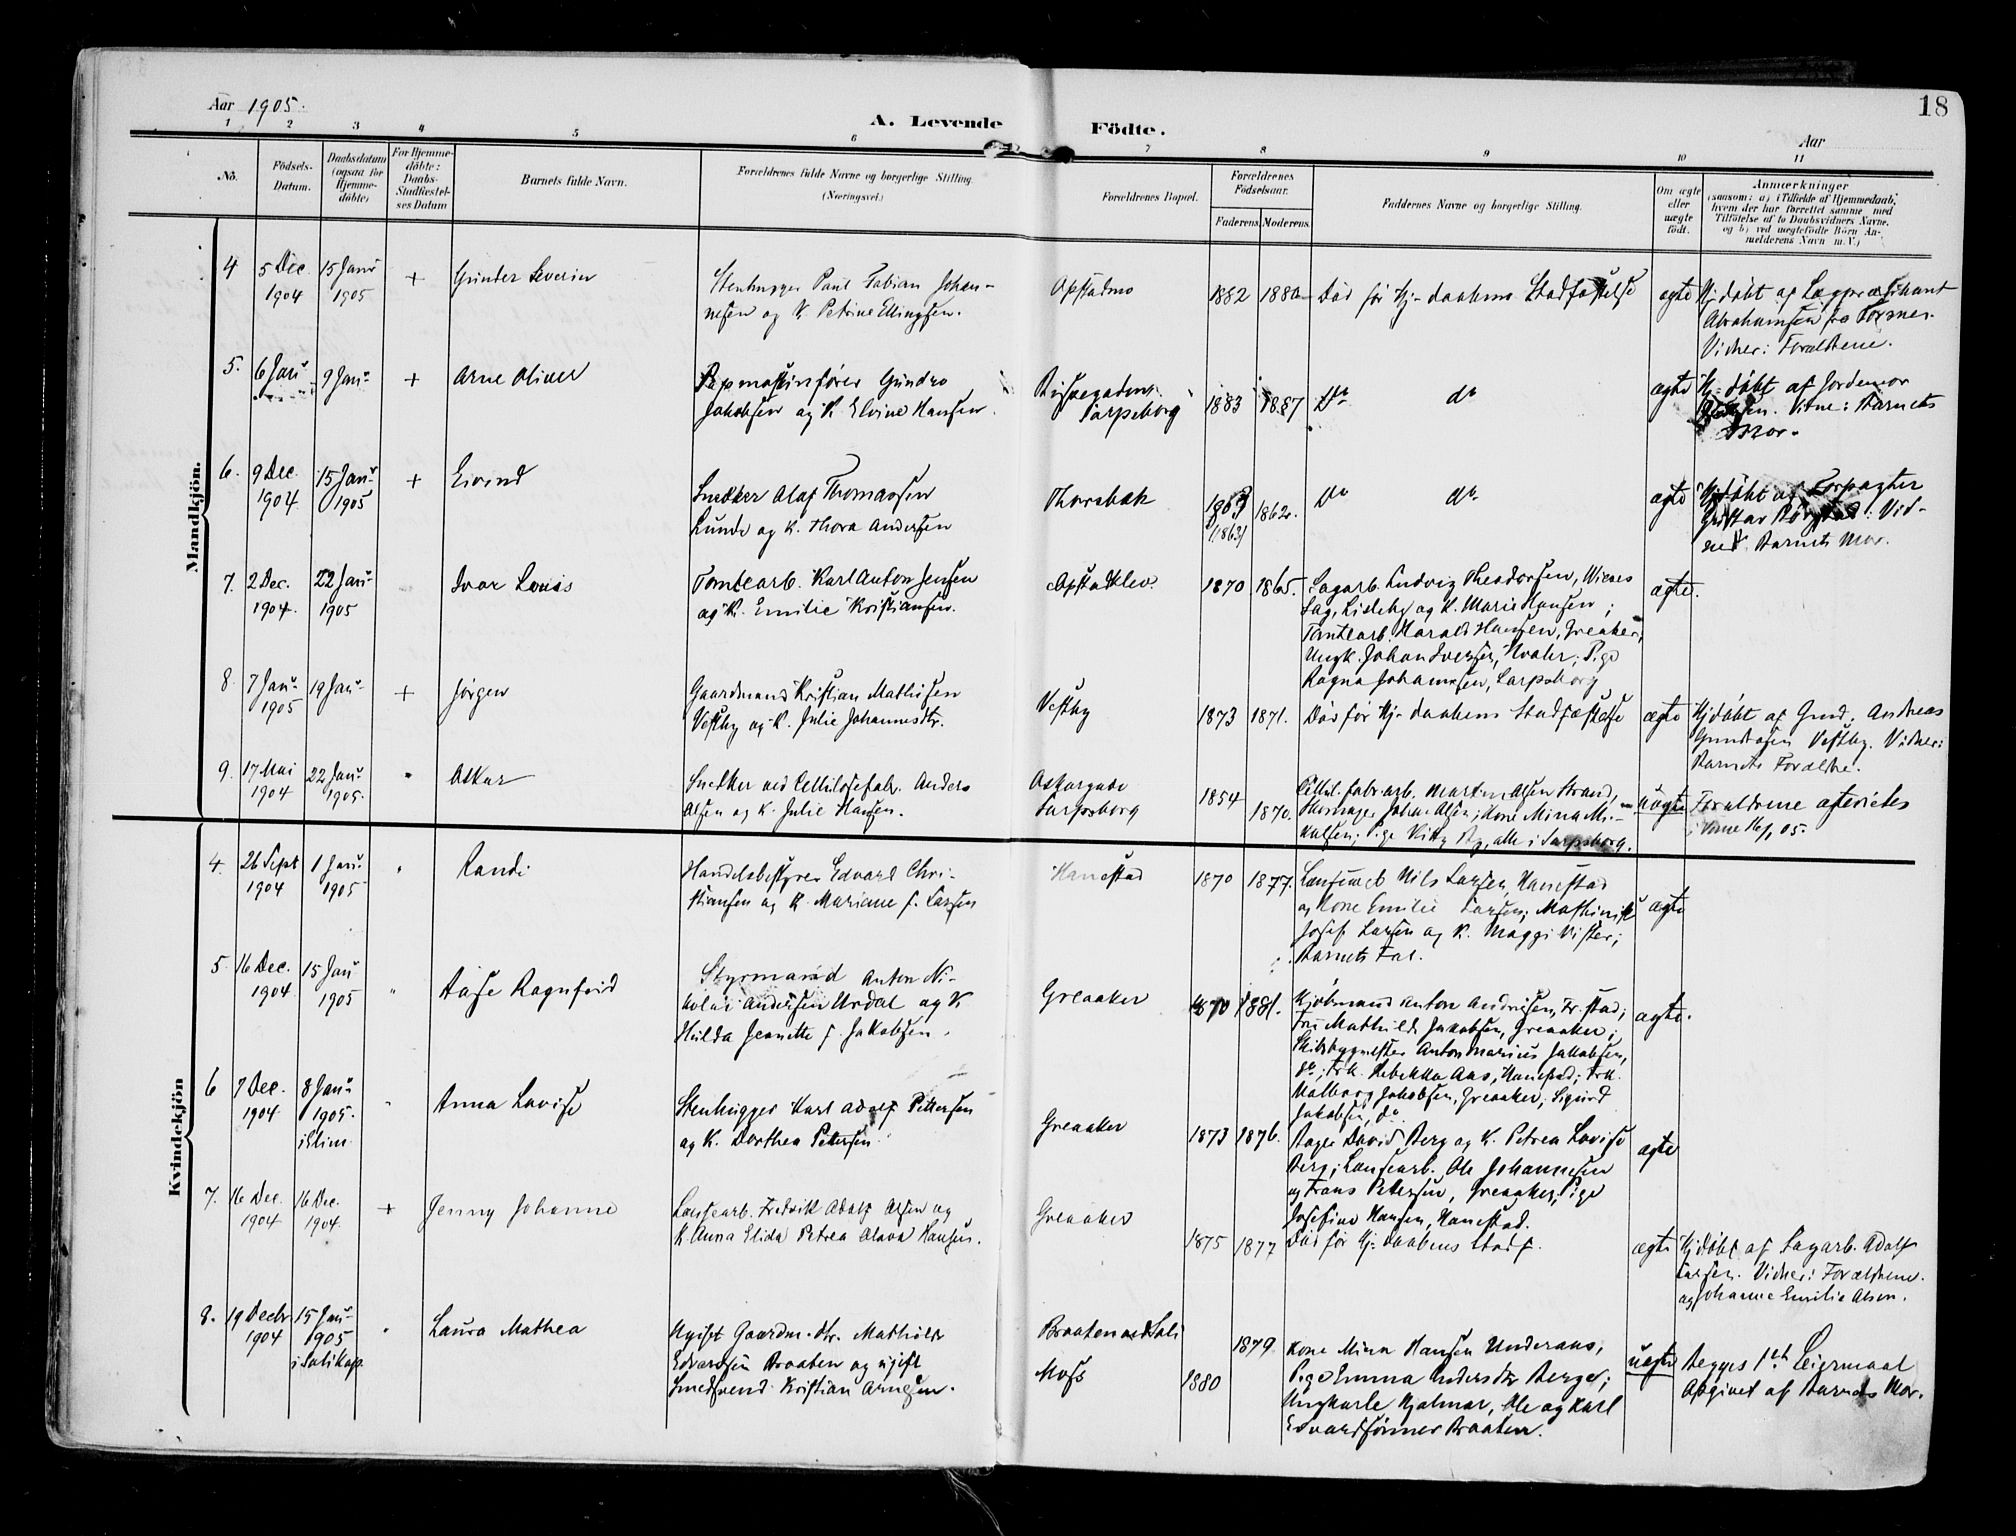 18
Aar 1905.
A. Levende Födte.
Aar
1 2 3 4 5 6 7 8 9 10 11
No.
Födsels-
Datum.
Daabsdatum
(ogsaa for
Hjemme-
döbte)
For Hjemme-
döbte:
Daabs-
Stadfæstel-
ses Datum
Barnets fulde Navn.
Forældrenes fulde Navne og borgerlige Stilling.
(Næringsvei.)
Forældrenes Bopæl.
Forældrenes
Födselsaar.
Faderens. Moderens.
Faddernes Navne og borgerlige Stilling.
Om ægte
eller
uægte
födt.
Anmærkninger
(saasom: a) i Tilfælde af Hjemmedaab,
hvem der har forrettet samme med
Tilföielse af to Daabsvidners Navne,
og b) ved uægtefödte Börn An-
melderens Navn m. V.)
Mandkjön.
4
5 Dec
1904
15 Janr
1905
+
Gunder Severin
Stenhugger Paul Fabian Johan-
nesen og K. Petrine Ellingsen.
Opstadmo
1882
Död før Hj-daabens Stadfæstelse
ægte
Hj.døbt af Lægprædikant
Abrahamsen fra
Vidner: Forældrene.
5.
6 Janr
9 Janr
+
Arne Oliver
Papmaskinfører Gundro
Jakobsen og K. Elvine Hansen.
Sarpsborg
1883
1887
Do do
ægte
Hj-døbt af Jordemor
Vitne: Barnets
Mor.
6.
9 Dec.
1904
15 Janr
1905
+
Eivind
Snedker Olaf Thomassen
Lunde og K. Thora Andersen
Thorsbæk
(1863)
1862.
Do do
ægte
Hjdøbt af Forpagter
Vid-
Barnets Mor.
7.
2 Dec.
1904.
22 Janr
1905
Ivar Louis
Tomtearb. Karl Anton Jensen
og K. Emilie Kristiansen.
1870
1865.
Sagarb. Ludvig Theodorsen, Wiers
Sag, Lisleby og K. Marie Hansen;
Tomtearb. Harald Hansen, Greaker;
Ungk. Johan Iversen, Hvaler; Pige
Ragna Johannesen, Sarpsborg
ægte.
8.
7 Janr
1905
19 Janr
+
Jørgen
Gaardmand Kristian Mathisen
Vestby og K. Julie Johannesdtr.
Vestby
1873
1871.
Död før Hj-daabens Stadfæstelse
ægte
Hjdøbt af Gmd. Andreas
Gundersen Vestby. Vidner:
Barnets Forældre.
9.
17 Mai
1904
22 Janr
1905.
"
Oskar
Snedker ved Cellulosefabr. Anders
Olsen og K. Julie Hansen.
Oskargade
Sarpsborg
1854
1870.
Cellul.fabr.arb. Martin Olsen Strand,
Johan Olsen; Kone Mina Mi-
kalsen; Pige Kitty By, alle i Sarpsborg.
uægte
Forældrene ægteviet
05.
Kvindekjön
4.
26 Sept
1904
1 Janr
1905
"
Randi
Handelsbestyrer Edvard Chri-
stiansen og K. Mariane f. Larsen
Hanestad
1870
1877.
Nils Larsen, Hanestad
og Kone Emilie Larsen; Maskinist
Josef Larsen og K. Maggi Vister;
Barnets Far.
ægte
5.
16 Dec.
1904
15 Janr
1905
"
Aase Ragnfrid
Styrmand Anton Ni-
kolai Andersen Urdal og K.
Hulda Jeanette f. Jakobsen.
Greaaker
1870
1881.
Kjøbmand Anton Andresen, Fr.stad;
Fru Mathilde Jakobsen, Greaaker;
Skibsbygmester Anton Marius Jakobsen,
do; Frk. Rebekka Aas, Hanestad; Frk.
Valborg Jakobsen, Greaaker; Sigurd
Jakobsen, do.
ægte.
6
7 Dec.
1904
8 Janr
1905.
i Elim.
"
Anna Lovise
Stenhugger Karl Adolf Pettersen
og K. Dorthea Petersen.
Greaaker
1873
1876.
Bager David Berg og K. Petrea Lovise
Berg; Lausearb. Ole Johannesen
og Frans Petersen, Greaaker, Pige
Josefine Hansen, Hanestad.
ægte
7.
16 Dec.
1904
16 Dec.
1904.
+
Jenny Johanne
Lausearb. Fredrik Adolf Olsen og
K. Anna Elida Petrea Olava Hansen.
Greaaker
1875
1877
Död før Hj-daabens Stadf.
ægte
Hjdøbt af Sagarb. Adolf
Larsen. Vidner: Forældrene.
og Johanne Emilie Olsen.
8.
19 Decbr
1904
15 Janr
1905
i Solikap.
"
Laura Mathea
Ugift Gaardm.dtr. Mathilde
Edvardsen Braaten og ugift
Smedsvend Kristian Arnesen.
Braaten ved Soli
Moss
1879
1880
Kone Mina Hansen Underaas,
Pige Emma Andersdtr Berger;
Ungkarle Hjalmar, Ole og Karl
Edvardsønner Braaten.
uægte
Begges 1ste Leiermaal
Opgivet af Barnets Mor.